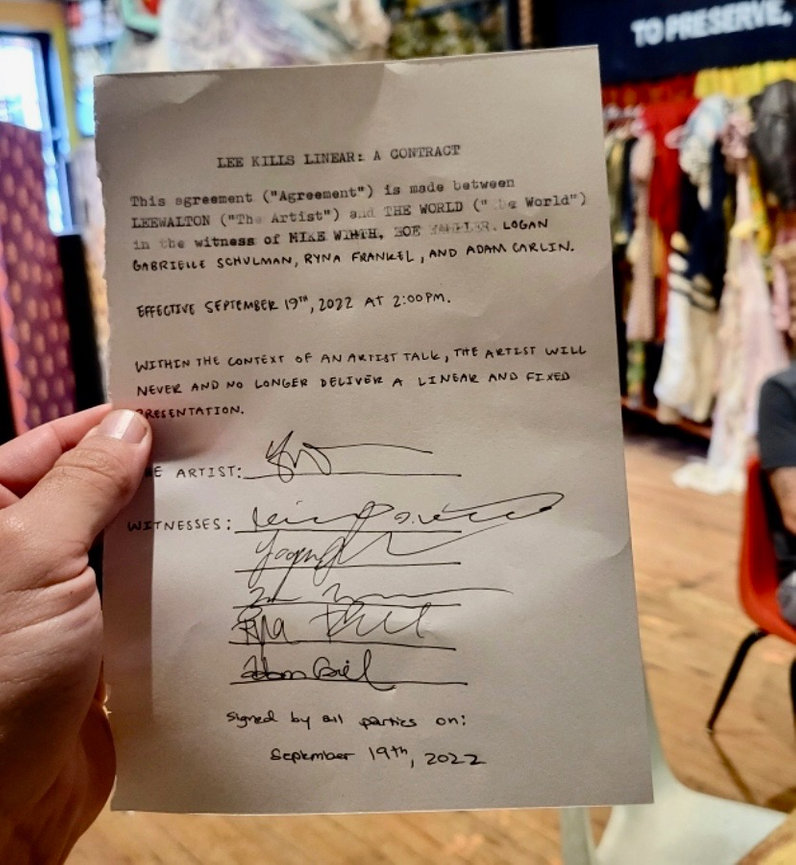 TO PRESERVE,
LEE KILLS LINEAR: A CONTRACT
This agreement ("Agreement") is made between
LEEWALTON ("The Artist") and THE WORLD ("the World")
in the witness of MIKE WIRTH, ZOE LOGAN
GABRIELLE SCHULMAN, RYNA FRANKEL, AND ADAM CARLIN.
EFFECTIVE SEPTEMBER 19TH, 2022 AT 2:00PM.
WITHIN THE CONTEXT OF AN ARTIST TALK, THE ARTIST WILL
NEVER AND NO LONGER DELIVER A LINEAR AND FIXED
PRESENTATION.
E ARTIST:
WITNESSES:
signed by all parties on:
September 19th, 2022